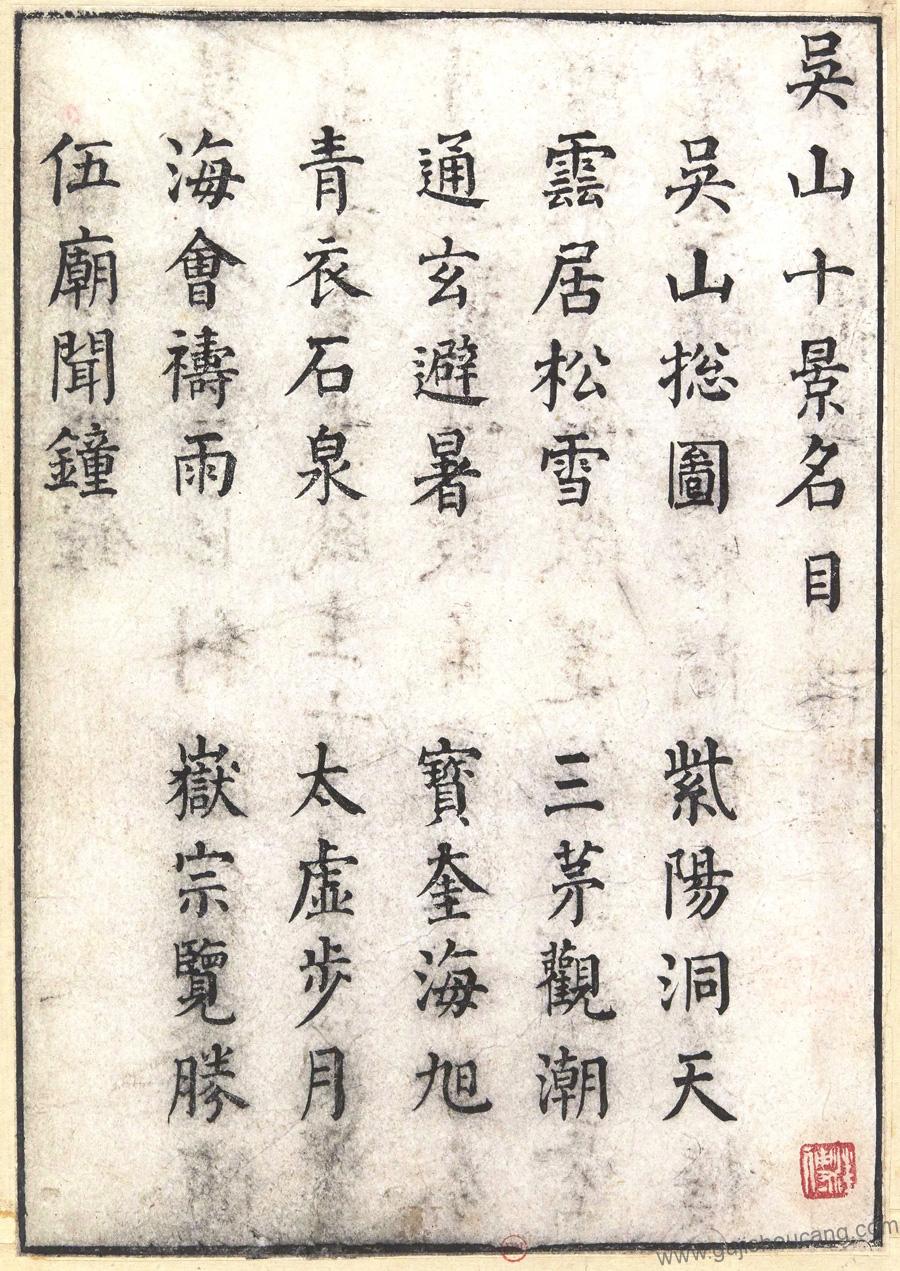 吳山十景名目
吳山揔圖
紫陽洞天
雲居松雪
三茅觀潮
通玄避暑
寶奎海旭
青衣石泉
太虛步月
海會禱雨
嶽宗覽勝
伍廟聞鐘
www.gujishoucang.com